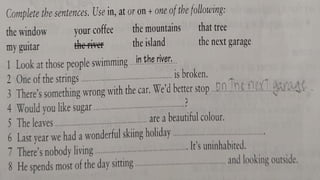 Complete the sentences. Use in, at or on + one of the following:
the window your coffee the mountains that tree
my guitar the river the island the next garage
1 Look at those people swimming in the river.
2 One of the strings ............ is broken.
3 There's something wrong with the car. We'd better stop on the next garage.
4 Would you like sugar ............ ?
5 The leaves ............ are a beautiful colour.
6 Last year we had a wonderful skiing holiday ............ .
7 There's nobody living ............ . It's uninhabited.
8 He spends most of the day sitting ............ and looking outside.